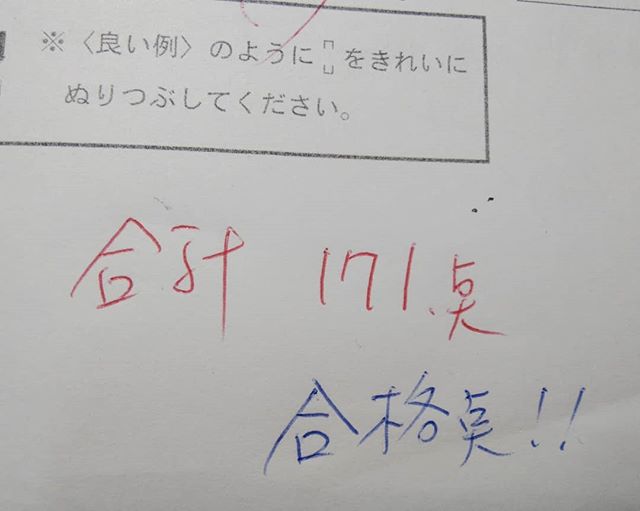 ※〈良い例〉のように[ ]をきれいに
ぬりつぶしてください。
合計 171点
合格点!!